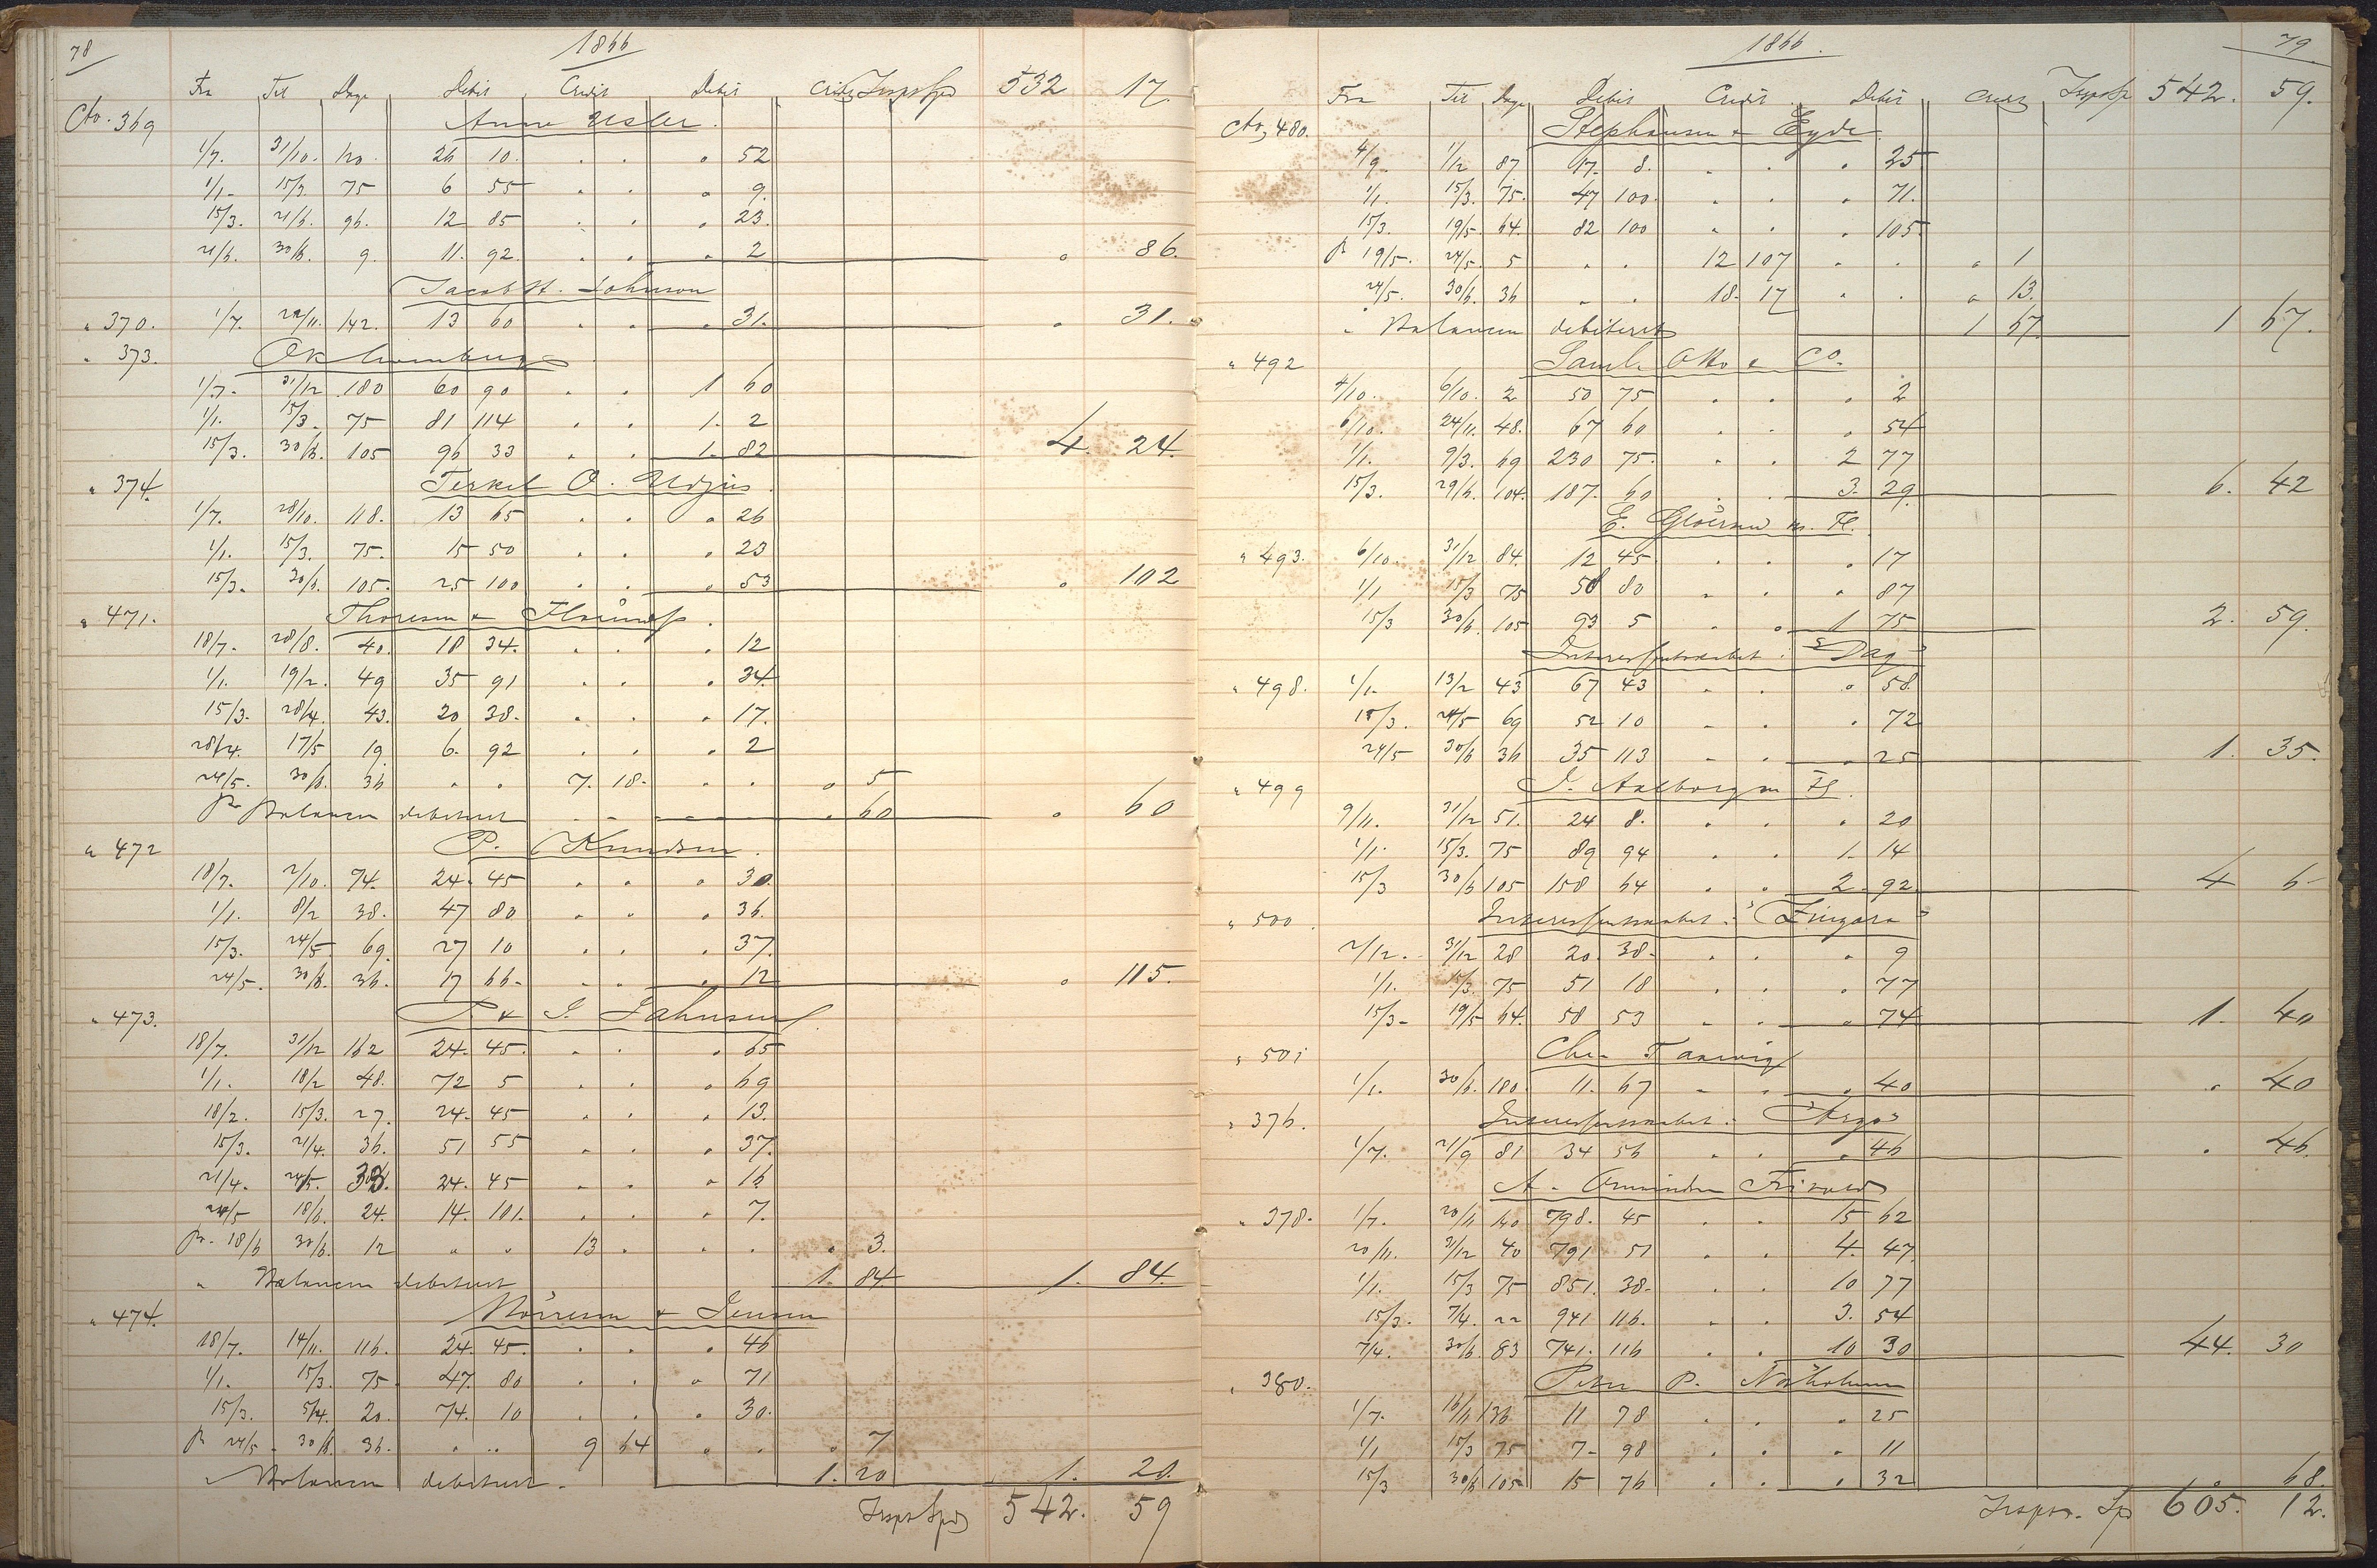 78
1866
Fra Til Dage Debit Credit Debit Credit Transp Spd 532 17.
Cto. 369 Anne Usler.
1/7. 31/10. 120. 26 10. . . " 52
1/1. 15/3. 75 6 55 . . " 9.
15/3. 21/6. 96. 12 85 . . " 23.
21/6. 30/6. 9. 11. 92. . . " 2 " 86.
Jacob A. Johnson
" 370. 1/7. 22/11. 142. 13 60 . . " 31. " 31.
" 373.
1/7. 31/12 180 60 90 . . 1 60
1/1. 15/3. 75 81 114 . . 1. 2
15/3. 30/6. 105 96 33 . . 1. 82 4. 24.
" 374. Terkel O. Udjus.
1/7. 28/10. 118. 13 65 . . " 26
1/1. 15/3. 75. 15 50 . . " 23
15/3. 30/6. 105. 25 100 . . " 53 " 102
" 471. Thoresen &
18/7. 28/8. 40. 18 34. . . " 12
1/1. 19/2. 49 35 91 . . " 34.
15/3. 28/4. 43. 20 38. . . " 17.
28/4. 17/5 19 6. 92 . . " 2
24/5. 30/6. 36 " " 7. 18. . . " 5
pr Balancen debiteret " 60 " 60
" 472 P. Knudsen.
18/7. 2/10. 74. 24. 45 . . " 30.
1/1. 8/2 38. 47 80 . . " 36.
15/3. 24/5 69. 27 10 . . " 37.
24/5. 30/6. 36. 17 66. . . " 12 " 115.
" 473. P & J. Jahnsen
18/7. 31/12 162 24. 45. . . " 65
1/1. 18/2 48. 72 5 . . " 69
18/2. 15/3. 27. 24. 45 . . " 13.
15/3. 21/4. 36. 51 55 . . " 37.
21/4. 24/5. 33. 24. 45 . . " 16
24/5 18/6. 24. 14. 101. . . " 7.
pr. 18/6 30/6. 12 " " 13 . . . " 3.
" Balancen debiteret 1. 84. 1. 84.
" 474. Mørresen & Jensen
18/7. 14/11. 116. 24. 45. . . " 46
1/1. 15/3. 75 47. 80 . . " 71
15/3. 5/4. 20. 74. 10 . . " 30.
pr 24/5. 30/6 36. " " 9 64 . . " 7
" Balancen debiteret. 1. 20 1. 20.
Transp Spd 542. 59
79.
1866.
Fra Til Dage Debit Credit Debit Credit Transp Sp 542. 59.
Cto, 480. Stephansen & Eyde
4/9. 1/12 87 17. 8. . . " 25
1/1. 15/3. 75. 47 100. . . " 71.
15/3. 19/5. 64. 82 100 . . " 105.
pr 19/5. 24/5. 5 " " 12 107 . . " 1
24/5. 30/6. 36 " " 18. 17 . . " 13.
" Balancen debiteret 1 67. 1 67.
" 492 Saml. Otto & Co.
4/10. 6/10. 2 50 75 . . " 2
6/10. 24/11. 48. 67 60 . . " 54
1/1. 9/3. 69 230 75. . . 2 77
15/3. 29/6. 104. 187. 60 . . 3. 29. 6. 42
E. Gloërsen m. Fl.
" 493. 6/10. 31/12 84. 12 45. . . " 17
1/1 15/3 75 58 80 . . " 87
15/3 30/6. 105 93 5 . . 1 75 2. 59.
Interessentskabet: "Dag"
" 498. 1/1. 13/2 43 67 43 . . " 58.
15/3. 24/5 69 52 10 . . " 72
24/5 30/6 36 35 113 . . " 25 1. 35.
" 499 J. Aalborg m Fl.
9/11. 31/12 51. 24 8. . . " 20
1/1. 15/3. 75 89 94 . . 1. 14
15/3 30/6 105 158 64 . . 2. 92. 4 6
" 500. Interessentskabet: "Zingara"
2/12. 31/12 28 20. 38. . . " 9
1/1. 15/3. 75 51 18 . . " 77
15/3. 19/5 64. 58 53 . . " 74 1. 40
" 501 Chr. Taarvig
1/1. 30/6. 180. 11. 67 . . " 40 " 40
" 376. Interessentskabet: "Argo"
1/7. 21/9 81 34 56 . . " 46 " 46.
" 378. 1/7. 20/11 140 798. 45 . . 15 62
20/11. 31/12 40 791 51 . . 4. 47.
1/1. 15/3 75 851. 38. . . 10 77
15/3. 7/4. 22 941 116. . . 3. 54
7/4. 30/6. 83 741. 116 . . 10 30 44. 30
" 380. Peter P.
1/7. 16/11 136 11 78 . . " 25
1/1 15/3 75 7. 98 . . " 11
15/3 30/6 105 15 76 . . " 32 " 68.
Transp. Sp 605. 12.